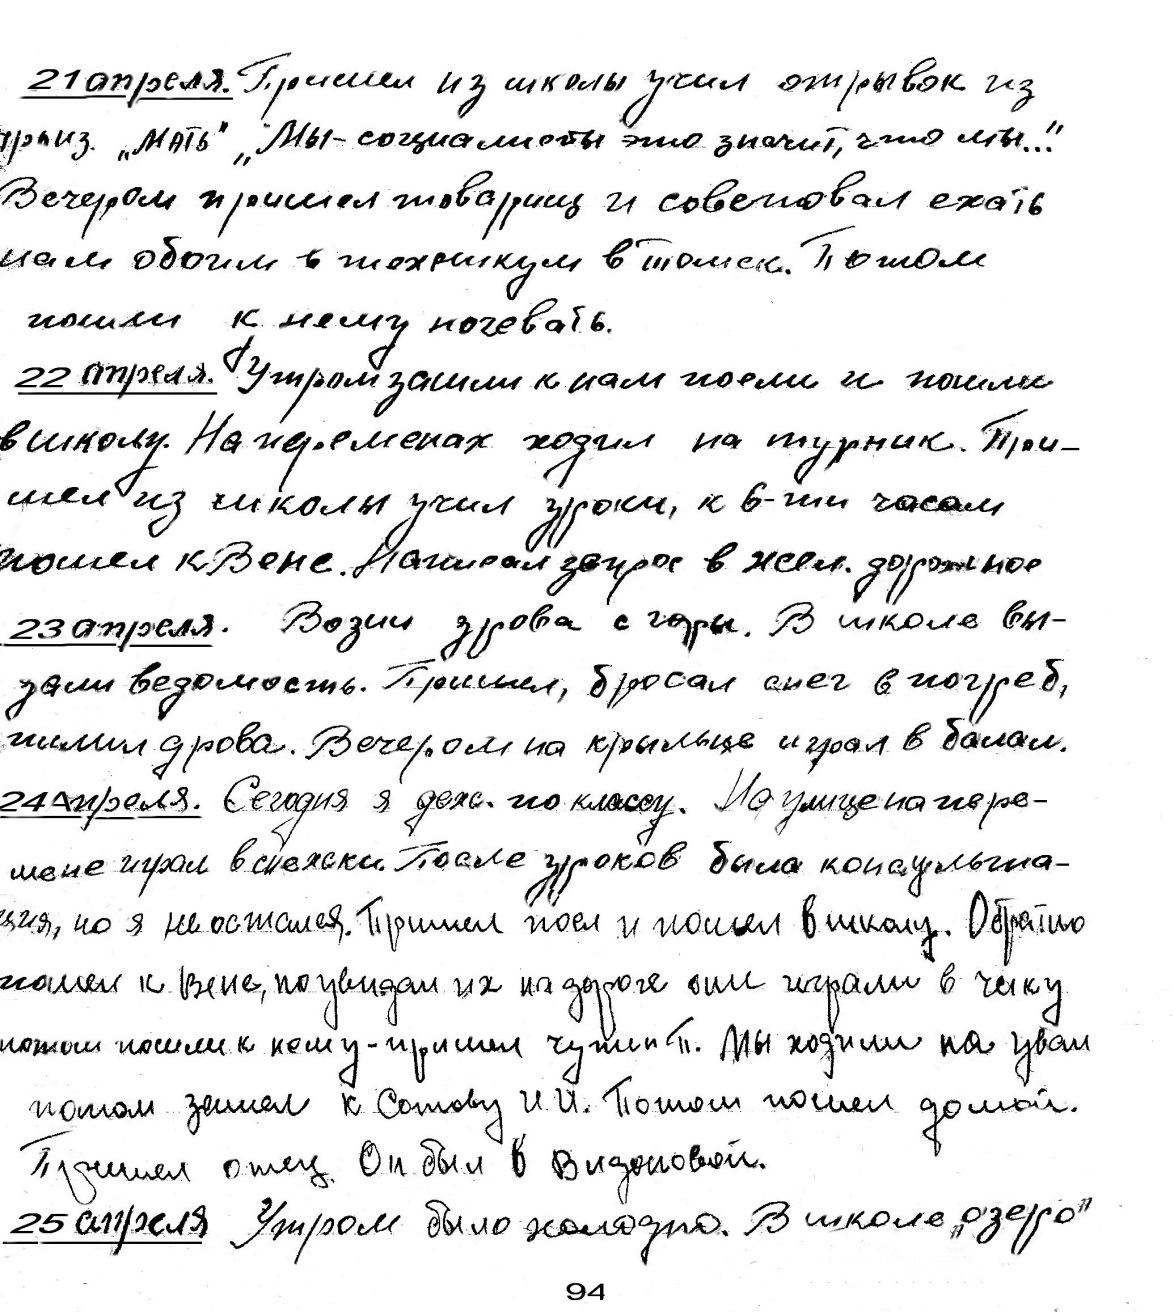 21 апреля. Пришел из школы учил отрывок из
произ. „Мать" „Мы-социалисты это значит, что мы..."
Вечером пришел товарищ и советовал ехать
нам обоим в техникум в Томск. Потом
пошли к нему ночевать.
22 апреля. Утром зашли к нам поели и пошли
в школу. На переменах ходил на турник. При-
шел из школы учил уроки, к 6-ти часам
пошел к Вене. Написал запрос в жел. дорожное
23 апреля. Возил дрова с горы. В школе вы-
дали ведомость. Пришел, бросал снег в погреб,
пилил дрова. Вечером на крыльце играл в балал.
24 апреля. Сегодня я деж. по классу. На улице на пере-
мене играл в снежки. После уроков была консульта-
ция, но я не остался. Пришел поел и пошел в школу. Обратно
пошел к Вене, но увидал их на дороге они играли в чику
потом пошли к нему-пришел П. Мы ходили на увал
потом зашел к Сотову И.И. Потом пошел домой.
Пришел отец. Он был в Видоновой.
25 апреля Утром было холодно. В школе „озеро"
94